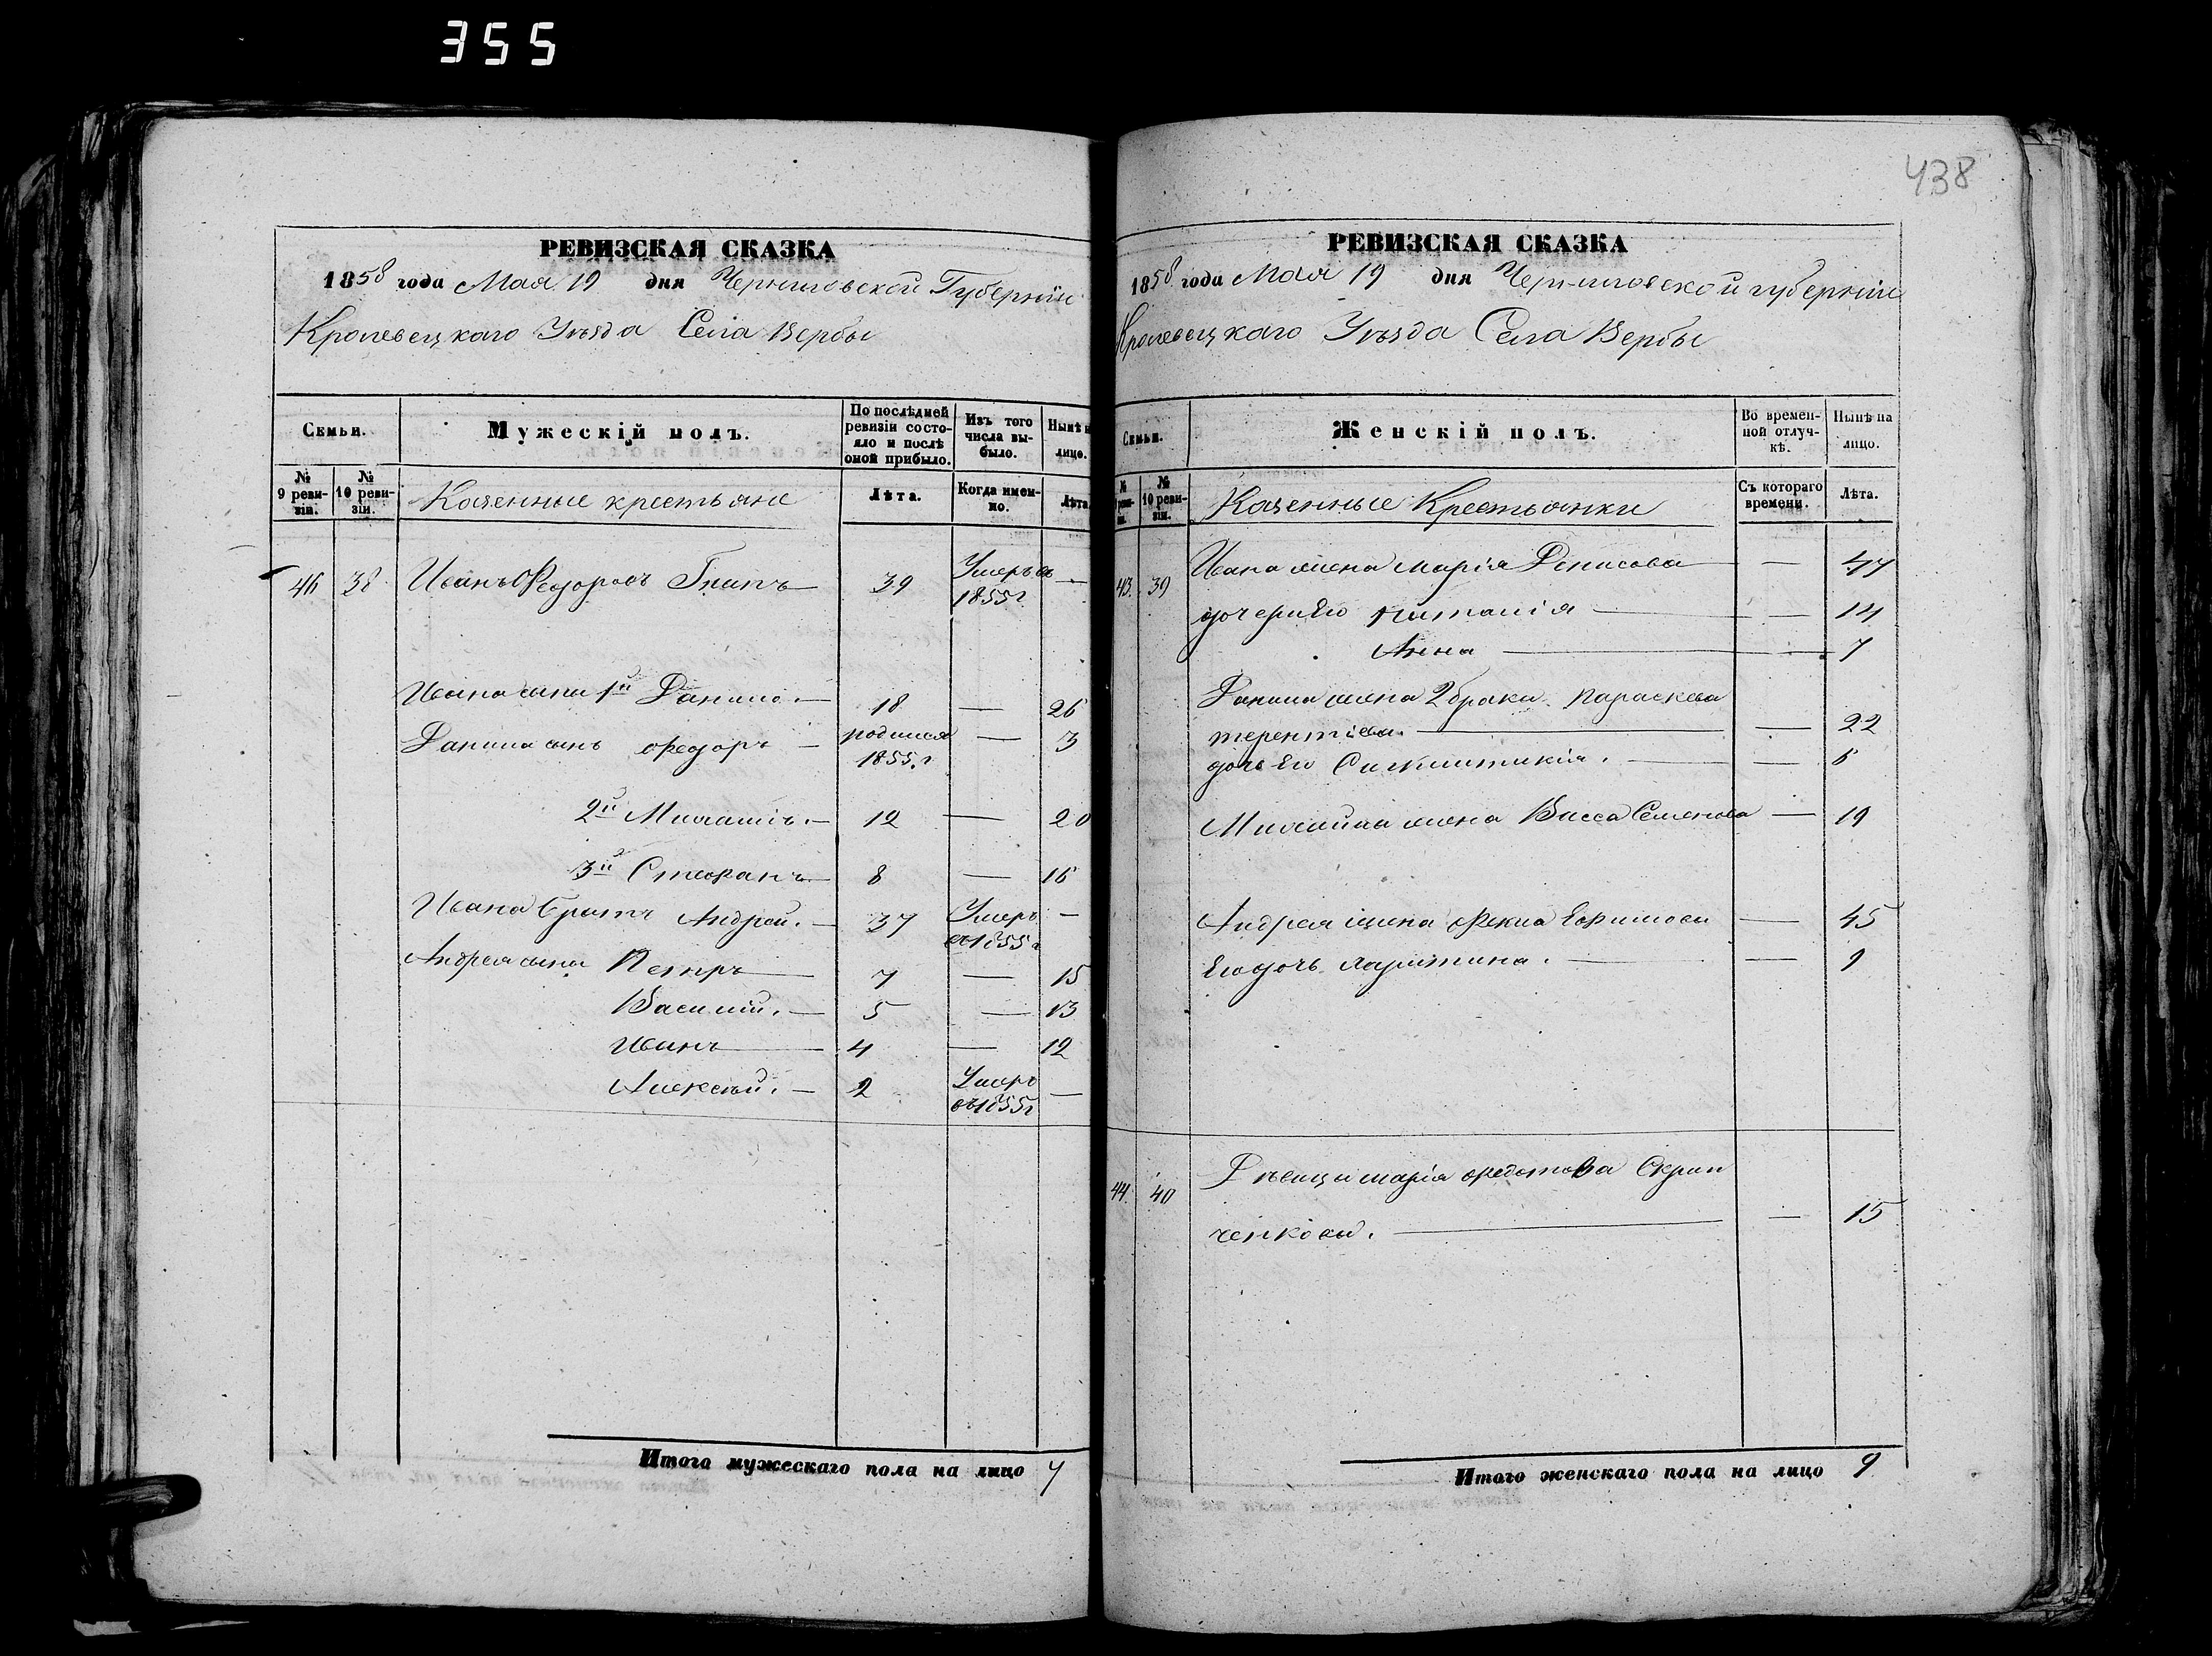 355
438
РЕВИЗСКАЯ СКАЗКА
1858 года Мая 19 дня Черниговской Губерніи
Кролевецкаго Уѣзда Села Вербы
Семьи.
Мужескій полъ.
По послѣдней ревизіи состояло и послѣ оной прибыло.
Изъ того числа выбыло.
Нынѣ н
лицо.
№ 9 ревизіи.
№ 10 ревизіи.
Казенные крестьяне
Лѣта.
Когда именно.
Лѣта
46 38 Иванъ Федоровъ Гнипъ 39 Умеръ въ 1855 г —
Ивана сыни 1й Данило. — 18 — 26
Данила сынъ Федоръ — родился 1855. г — 3
2й Михаилъ. — 12 — 20
3й Стефанъ — 8 — 16
Ивана братъ Андрей. — 37 Умеръ въ 1855 г —
Андрея сыни Петръ — 7 — 15
Василий. — 5 — 13
Иванъ — 4 — 12
Алексѣй. — 2 Умеръ въ 1855 г —
Итого мужескаго пола на лицо 7
РЕВИЗСКАЯ СКАЗКА
1858 года Мая 19 дня Черниговской губерніи
Кролевецкаго Уѣзда Села Вербы
Семьи.
Женскій полъ.
Во временной отлучкѣ.
Нынѣ на лицо.
№ 10 ревизіи.
Казенные Крестьянки
Съ котораго времени.
Лѣта.
43. 39 Ивана жена Марія Денисова — 47
дочери Его Китанія — — 14
Анна — 7
Данила жена 2 брака Параскева
терентіева. — — 22
дочь Его — — 6
Михайла жена Васса Семенова — 19
Андрея жена Фекла Ефимова — 45
Его дочь Харитина. — — 9
44. 40 Дѣвица Марія Федотова Скрип
ченкова. — — 15
Итого женскаго пола на лицо 9